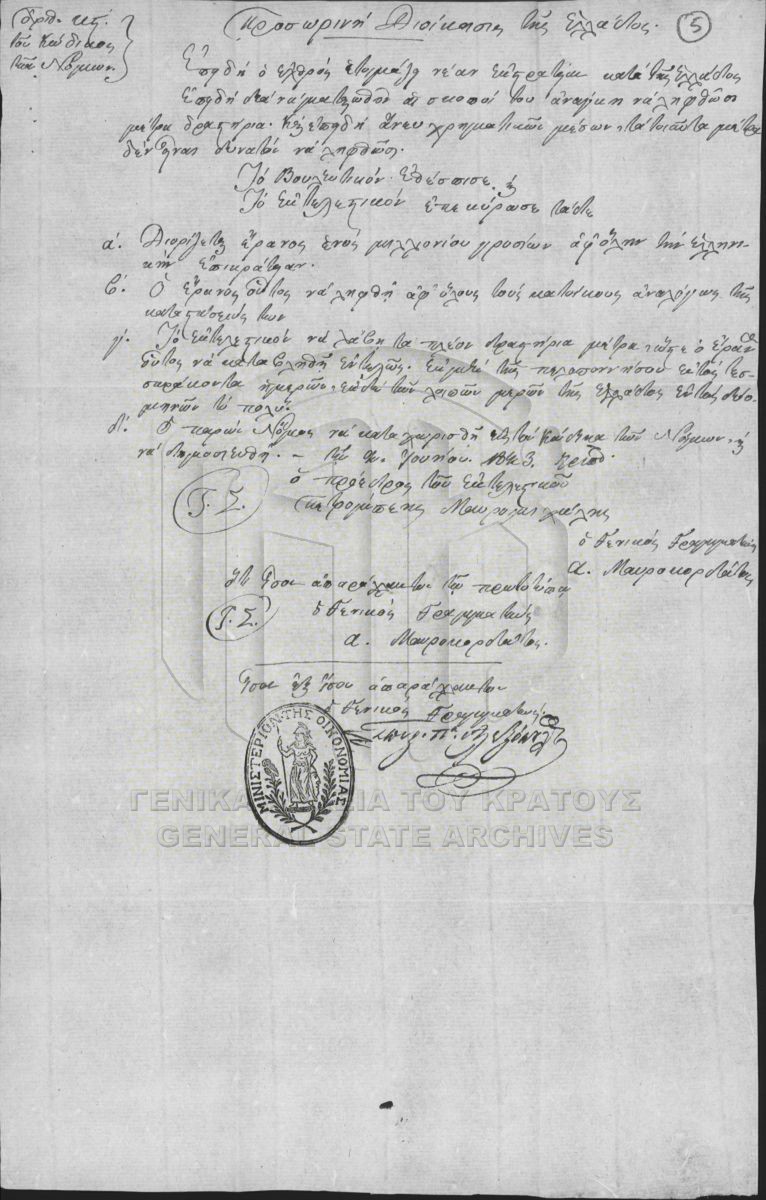 Ἀριθ. κζ.
τοῦ Κώδικος
τῶν Νόμων
Προσωρινὴ Διοίκησις τῆς Ἑλλάδος.
5
Ἐπειδὴ ὁ ἐχθρὸς ἑτοιμάζει νέαν ἐκστρατείαν κατὰ τῆς Ἑλλάδος
Ἐπειδὴ διὰ νὰ ματαιωθοῦν οἱ σκοποί του ἀνάγκη νὰ ληφθῶσι
μέτρα δραστήρια. Καὶ ἐπειδὴ ἄνευ χρηματικῶν μέσων, τὰ τοιαῦτα μέτρα
δὲν εἶναι δυνατὸν νὰ ληφθῶσι.
Τὸ Βουλευτικὸν ἐθέσπισε, καὶ
Τὸ Ἐκτελεστικὸν ἐπεκύρωσε τάδε
α΄. Διορίζεται ἔρανος ἑνὸς μιλλιονίου γροσίων ἀφ' ὅλην τὴν ἑλληνι-
κὴν ἐπικράτειαν.
β΄. Ὁ ἔρανος οὗτος νὰ ληφθῇ ἀφ' ὅλους τοὺς κατοίκους ἀναλόγως τῆς
καταστάσεώς των
γ΄. Τὸ Ἐκτελεστικὸν νὰ λάβῃ τὰ πλέον δραστήρια μέτρα, ὥστε ὁ ἔρανος
οὗτος νὰ καταβληθῇ ἐντελῶς. ἐκ μὲν τῆς Πελοποννήσου ἐντὸς τεσ-
σαράκοντα ἡμερῶν, ἐκ δὲ τῶν λοιπῶν μερῶν τῆς Ἑλλάδος ἐντὸς δύο
μηνῶν τὸ πολύ.
δ΄. Ὁ παρὼν Νόμος νὰ καταχωρισθῇ εἰς τὸν Κώδικα τῶν Νόμων, καὶ
νὰ δημοσιευθῇ. — τῇ Ἰουνίου. 1823.
ὁ πρόεδρος τοῦ Ἐκτελεστικοῦ
Πετρόμπεης Μαυρομιχάλης
Τ.Σ.
ὁ Γενικὸς Γραμματεὺς
Α. Μαυροκορδάτος
Ὅτι ἴσον ἀπαράλλακτον τῷ πρωτοτύπῳ
Τ.Σ.
ὁ Γενικὸς Γραμματεὺς
Α. Μαυροκορδάτος.
Ἴσον ἐξ ἴσου ἀπαράλλακτον
ὁ Γενικὸς Γραμματεὺς
ΜΙΝΙΣΤΕΡΙΟΝ ΤΗΣ ΟΙΚΟΝΟΜΙΑΣ
ΓΕΝΙΚΑ ΤΟΥ ΚΡΑΤΟΥΣ
GENERAL STATE ARCHIVES